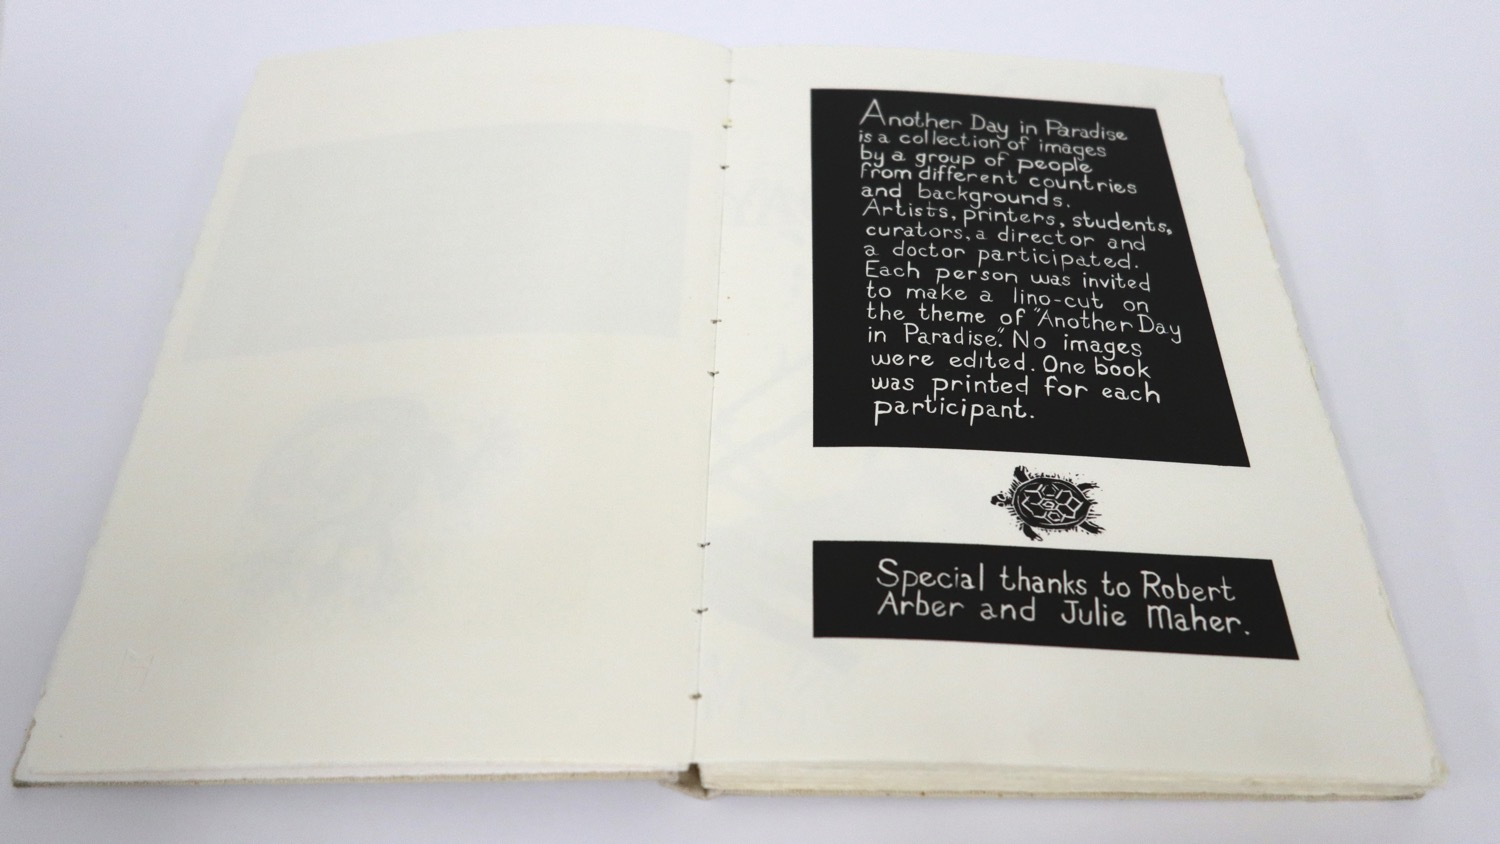 Another Day in Paradise
is a collection of images
by a group of people
from different countries
and backgrounds.
Artists, printers, students,
curators, a director and
a doctor participated.
Each person was invited
to make a lino-cut on
the theme of "Another Day
in Paradise". No images
were edited. One book
was printed for each
participant.
Special thanks to Robert
Arber and Julie Maher.